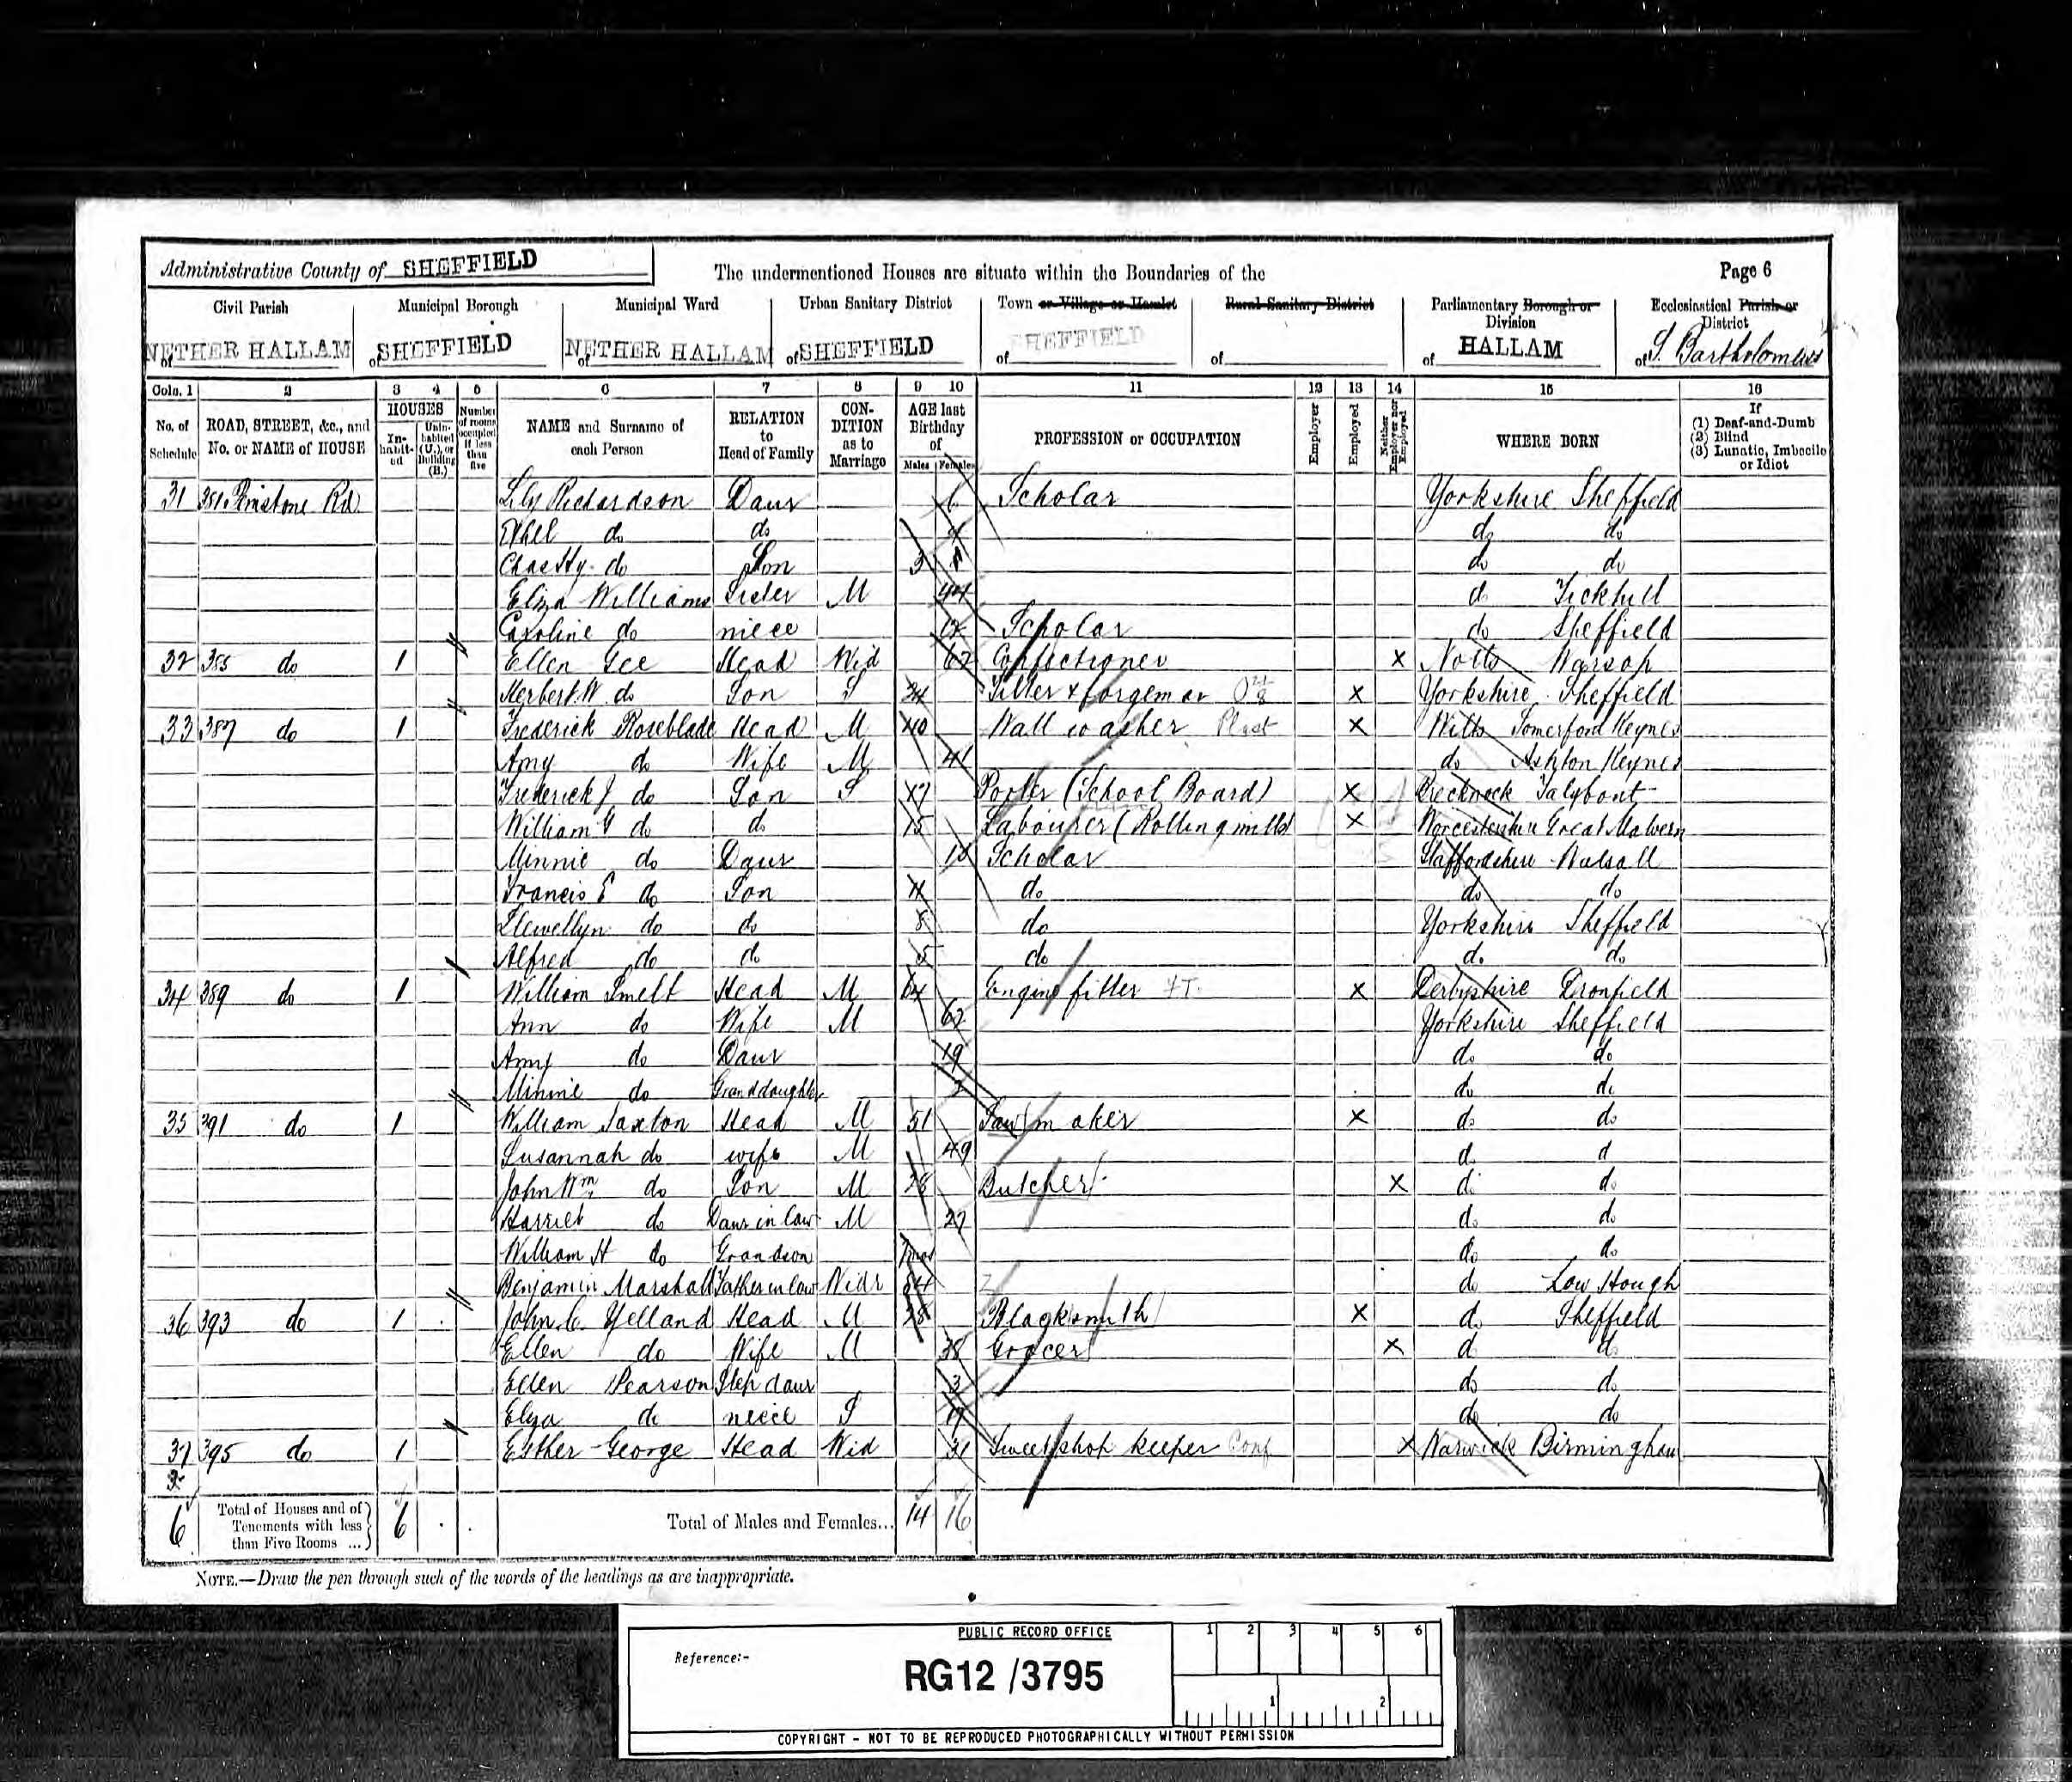 Administrative County of SHEFFIELD The undermentioned Houses are situate within the Boundaries of the Page 6
Civil Parish Municipal Borough Municipal Ward Urban Sanitary District Town or Village or Hamlet Rural Sanitary District Parliamentary Borough or Division Ecclesiastical Parish or District
of NETHER HALLAM of SHEFFIELD of NETHER HALLAM of SHEFFIELD of SHEFFIELD of of HALLAM of S. Bartholomews
Cols. 1 2 3 4 5 6 7 8 9 10 11 12 13 14 15 16
No. of Schedule ROAD, STREET, &c., and No. or NAME of HOUSE HOUSES Inhabited Uninhabited (U.), or Building (B.) Number of rooms occupied if less than five NAME and Surname of each Person RELATION to Head of Family CONDITION as to Marriage AGE last Birthday of Males Females PROFESSION or OCCUPATION Employer Employed Neither Employer nor Employed WHERE BORN If (1) Deaf-and-Dumb (2) Blind (3) Lunatic, Imbecile or Idiot
31 381 Rd Lily Richardson Daur 6 Scholar Yorkshire Sheffield
Ethel do do do do
Chas Hy. do Son 3 do do
Eliza Williams Sister M 44 do Tickhill
Caroline do niece 12 Scholar do Sheffield
32 385 do 1 Ellen Lee Head Wid 62 Confectioner X Notts Warsop
Herbert W do Son S 24 Tilter & forgeman X Yorkshire Sheffield
33 387 do 1 Frederick Roseblade Head M 40 Wall washer Plast X Wilts Somerford Keynes
Amy do Wife M 41 do Ashton Keynes
Frederick J do Son S 17 Porter (School Board) X Brecknock Talybont
William G do do 15 Labourer (Rolling mills) X Worcestershire Great Malvern
Minnie do Daur Scholar Staffordshire Walsall
Francis E do Son 11 do do do
Llewellyn do do 8 do Yorkshire Sheffield
Alfred do do 5 do do do
34 389 do 1 William Smelt Head M 64 Engine fitter X Derbyshire Dronfield
Ann do Wife M 62 Yorkshire Sheffield
Amy do Daur 19 do do
Minnie do Granddaughter do do
35 391 do 1 William Saxton Head M 51 Saw maker X do do
Susannah do wife M 49 do do
John Wm do Son M 28 Butcher X do do
Harriet do Daur in law M 27 do do
William H do Grandson do do
Benjamin Marshall Father in law Widr 84 do Low Hough
36 393 do 1 John C. Yelland Head M Blacksmith X do Sheffield
Ellen do Wife M 38 Grocer X do do
Ellen Pearson Step daur 3 do do
Eliza do neice S 19 do do
37 395 do 1 Esther George Head Wid 31 Sweet shop keeper Conf X Warwick Birmingham
6 Total of Houses and of Tenements with less than Five Rooms ... 6 Total of Males and Females... 14 16
NOTE.—Draw the pen through such of the words of the headings as are inappropriate.
PUBLIC RECORD OFFICE
Reference:-
RG12 /3795
1 2 3 4 5 6
1 2
COPYRIGHT - NOT TO BE REPRODUCED PHOTOGRAPHICALLY WITHOUT PERMISSION